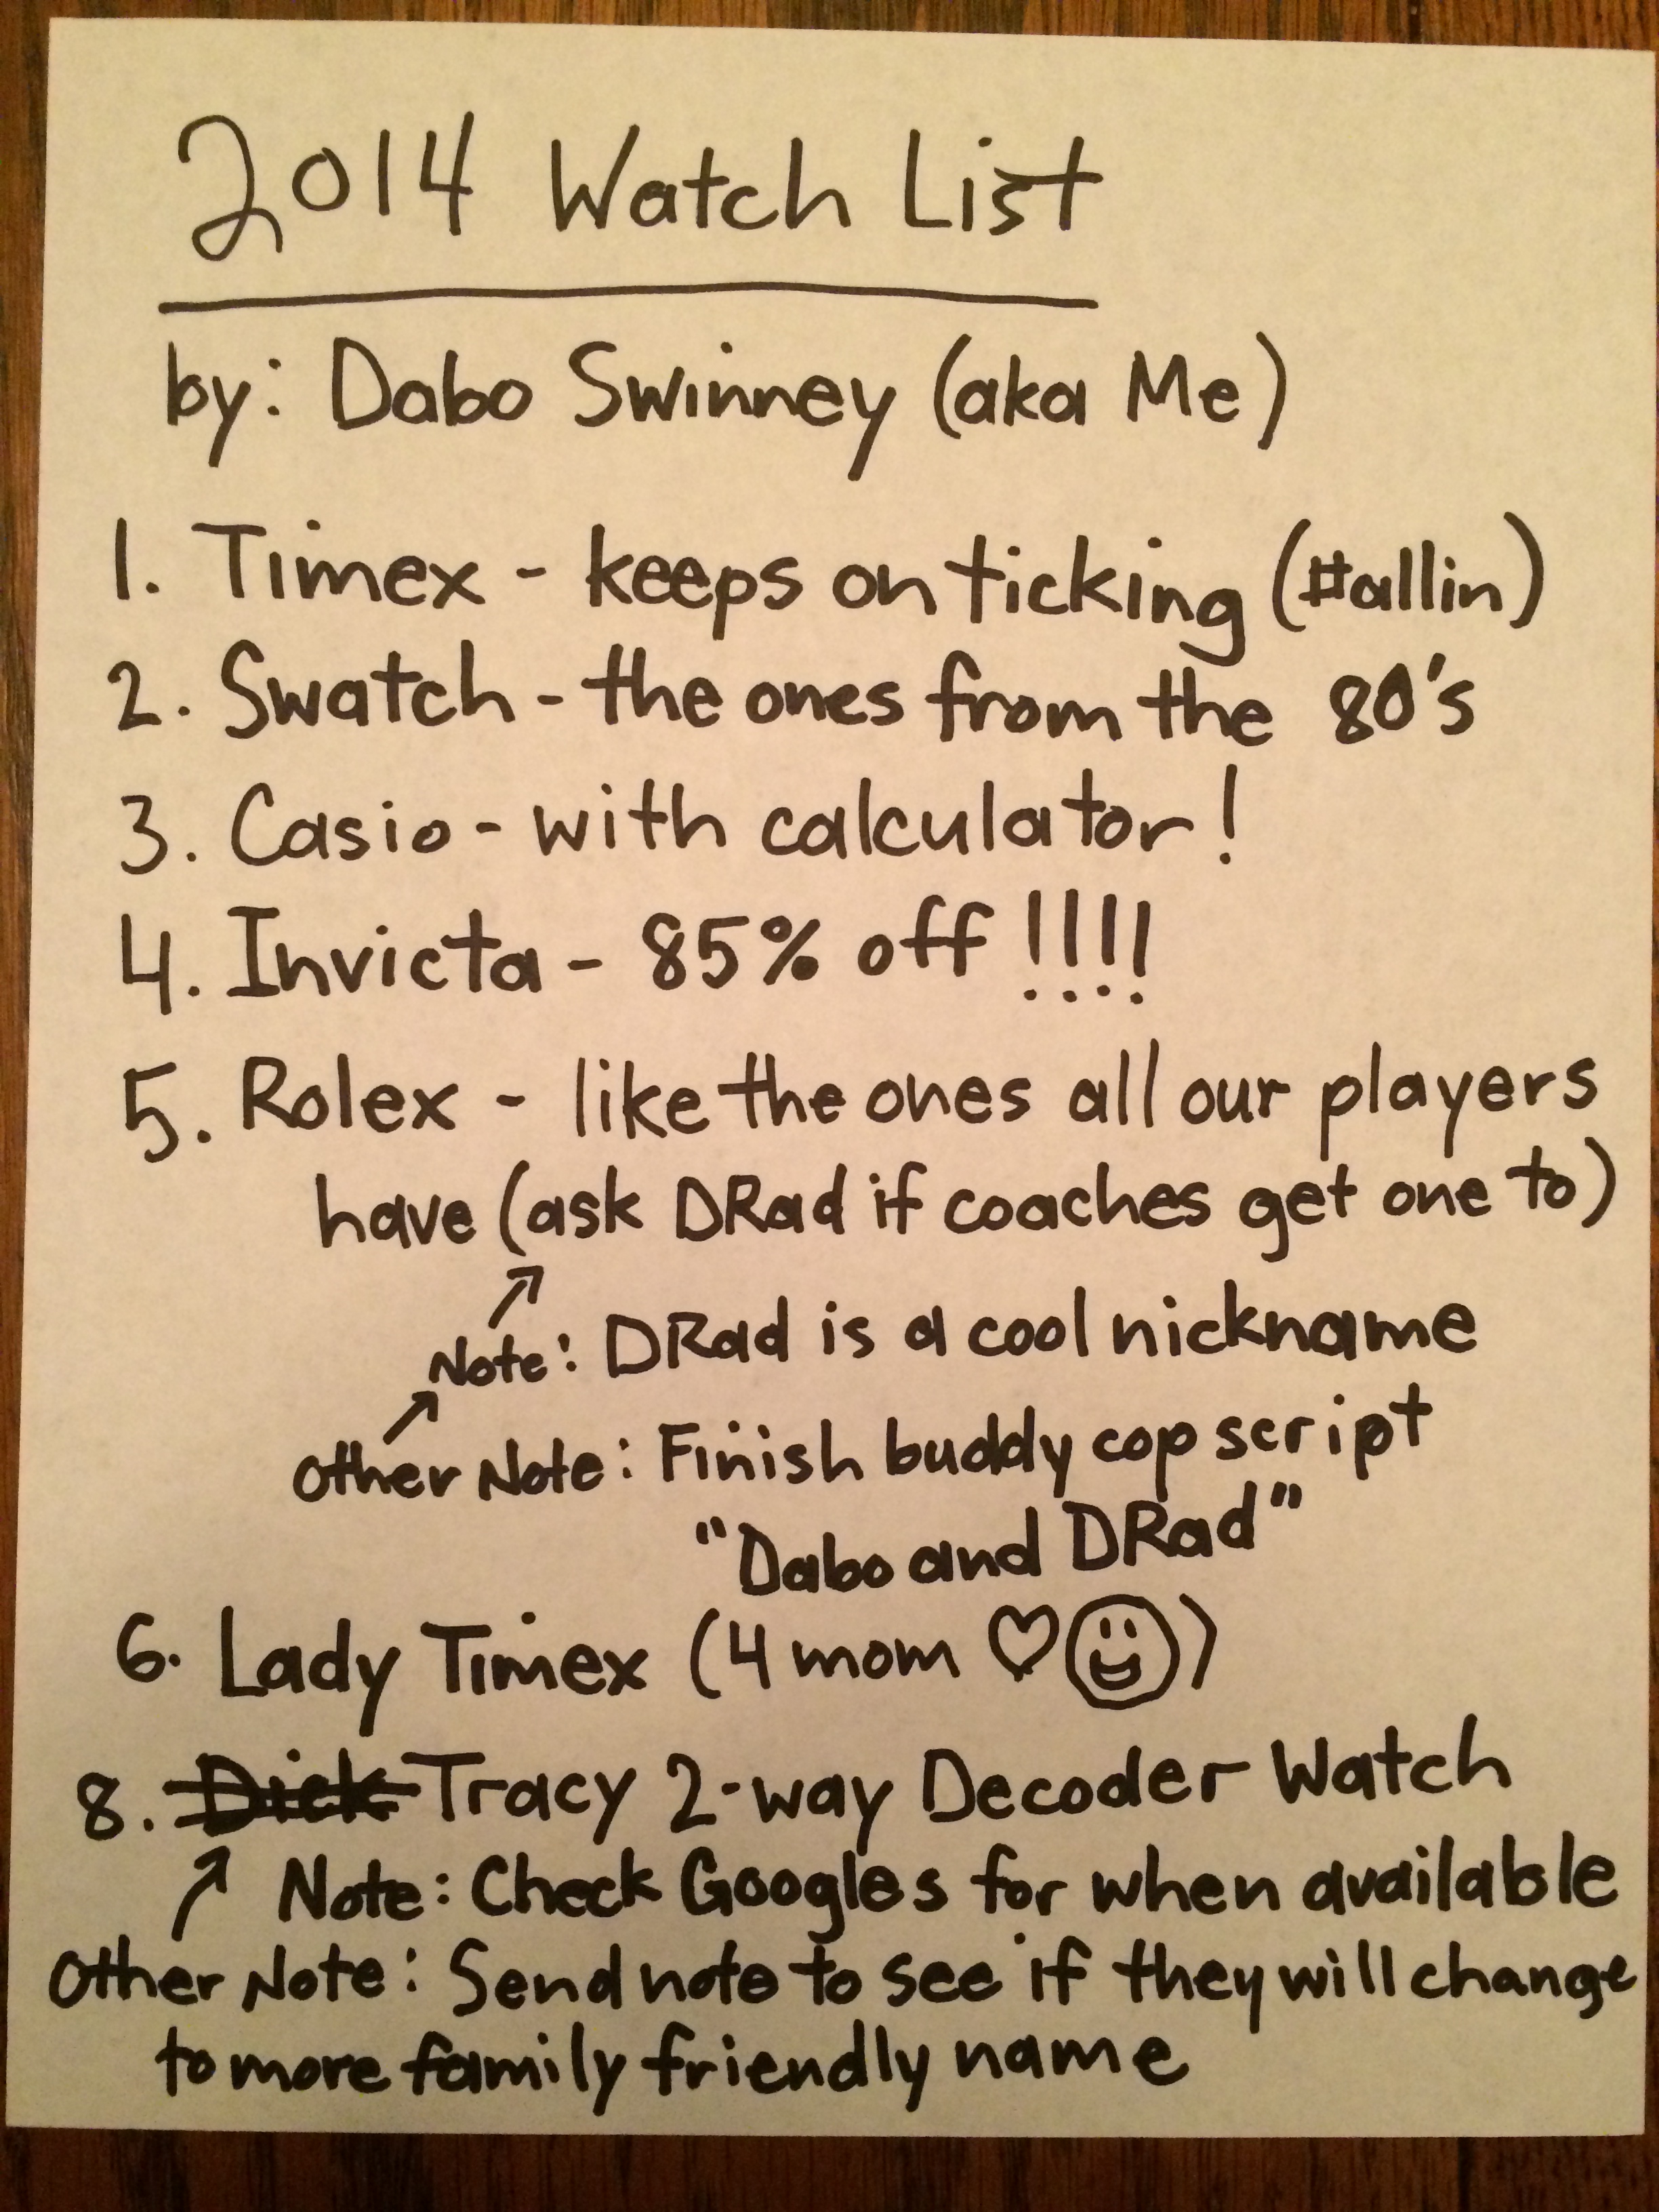 2014 Watch List
by: Dabo Swinney (aka Me)
1. Timex - keeps on ticking (#allin)
2. Swatch - the ones from the 80's
3. Casio - with calculator!
4. Invicta - 85% off !!!!
5. Rolex - like the ones all our players
have (ask DRad if coaches get one to)
Note: DRad is a cool nickname
Other Note: Finish buddy cop script
"Dabo and DRad"
6. Lady Timex (4 mom ♡☺)
8. Dick Tracy 2-way Decoder Watch
Note: Check Googles for when available
Other Note: Send note to see if they will change
to more family friendly name